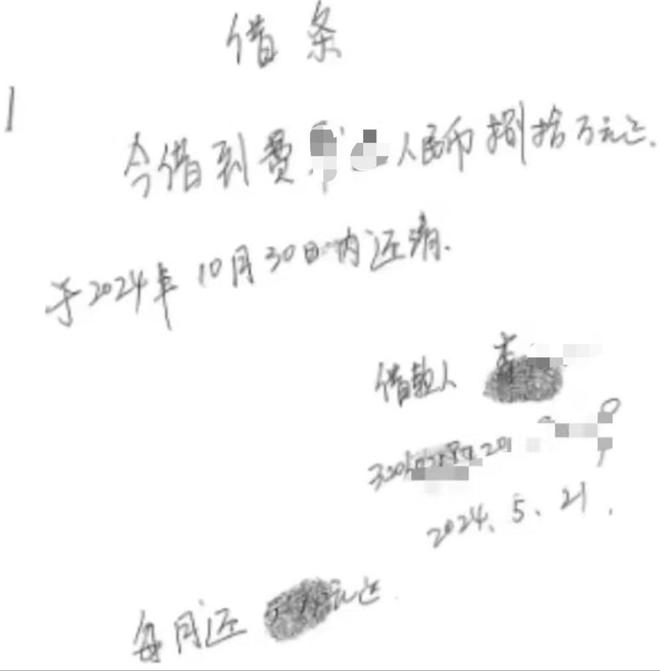 借条
今借到费 人民币捌拾万元正.
于2024年10月30日内还清.
借款人 李
2024.5.21.
每月还 元正